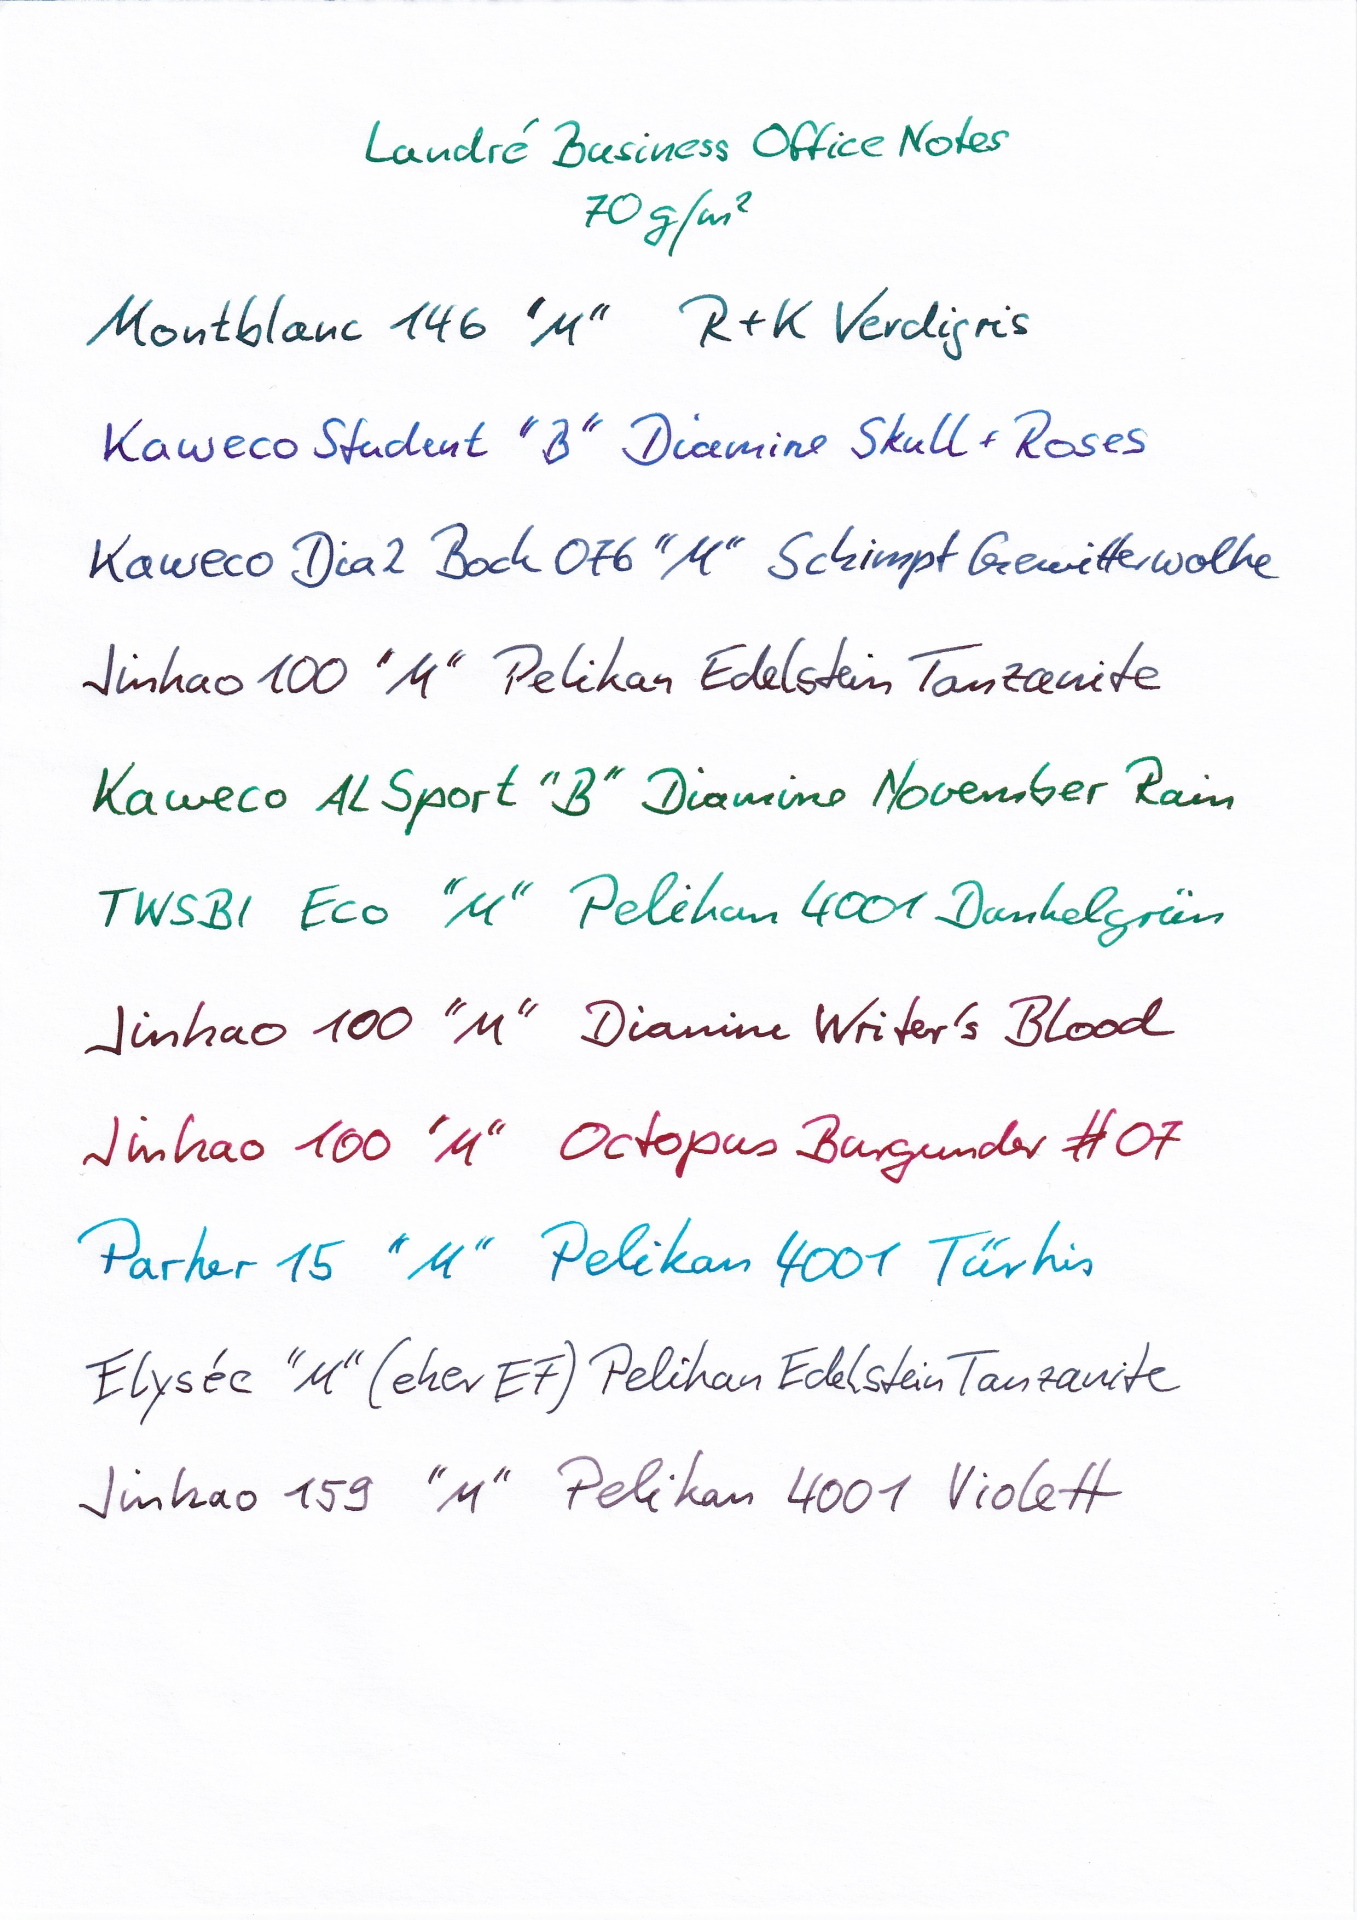 Landré Business Office Notes
70 g/m²
Montblanc 146 "M" R+K Verdigris
Kaweco Student "B" Diamine Skull + Roses
Kaweco Dia2 Bock 076 "M" Schimpf Gewitterwolke
Jinhao 100 "M" Pelikan Edelstein Tanzanite
Kaweco AL Sport "B" Diamine November Rain
TWSBI Eco "M" Pelikan 4001 Dunkelgrün
Jinhao 100 "M" Diamine Writer's Blood
Jinhao 100 "M" Octopus Burgunder #07
Parker 15 "M" Pelikan 4001 Türkis
Elysée "M" (eher EF) Pelikan Edelstein Tanzanite
Jinhao 159 "M" Pelikan 4001 Violett